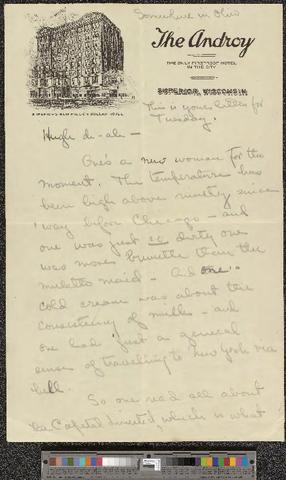 Somewhere in Ohio
The Androy
THE ONLY FIREPROOF HOTEL
IN THE CITY
SUPERIOR, WISCONSIN
This is your letter for
Tuesday.
Hugh
One's a new woman for the
moment. The temperature has
been high above ninety since
'way before Chicago - and
one was just so dirty one
was more brunette than the
mulatto maid - And one's
cold cream was about the
consistency of milk - and
one had just a general
sense of travelling to New York via
hell.
So one read all about
Capital which is what